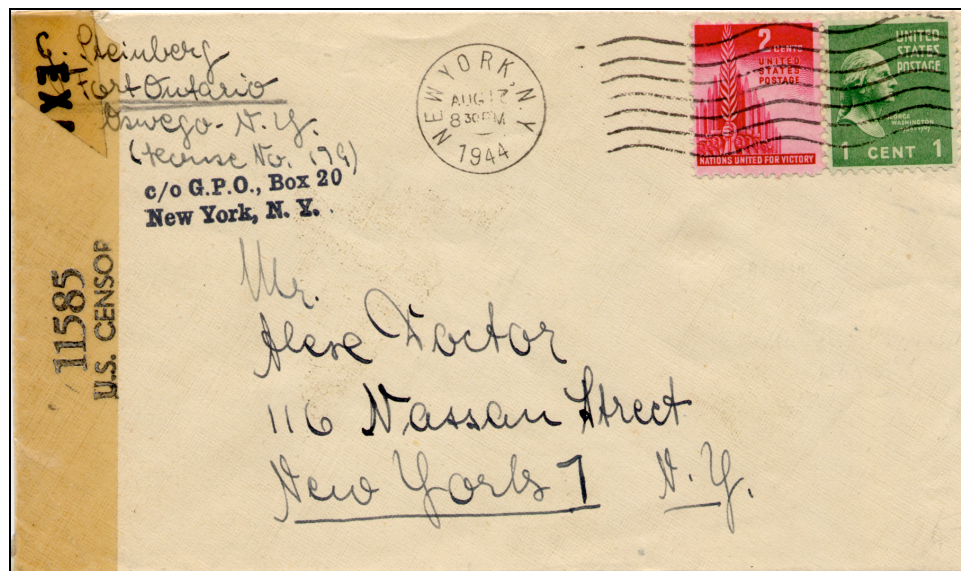 G. Steinberg
Fort Ontario
Oswego - N.Y.
(House No. 179)
c/o G.P.O., Box 20
New York, N. Y.
NEW YORK, N.Y.
AUG 17
8 30 PM
1944
2 CENTS
UNITED
STATES
POSTAGE
NATIONS UNITED FOR VICTORY
UNITED
STATES
POSTAGE
GEORGE
WASHINGTON
1 CENT 1
EX
11585
U.S. CENSOR
Mr.
Alexe Doctor
116 Nassau Street
New York 7 N.Y.